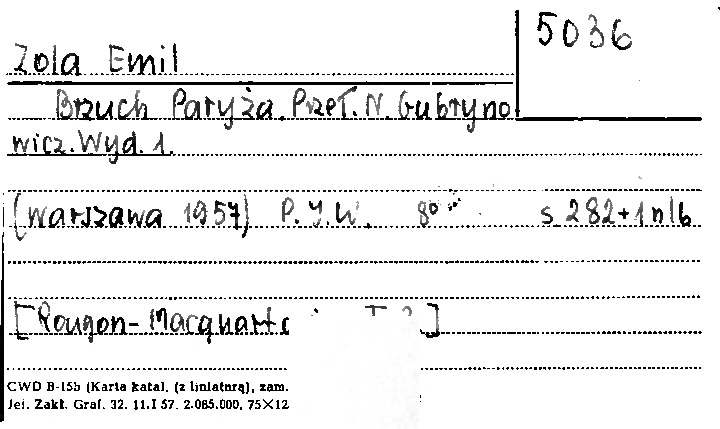 5036
Zola Emil
Brzuch Paryża. Przeł. N. Gubryno
wicz. Wyd. 1.
(Warszawa 1957) P.I.W. 8° s. 282+1 nlb
[Rougon-Macquart T. ]
CWD B-15b (Karta katal. (z liniaturą), zam.
Jel. Zakł. Graf. 32. 11.I 57. 2.085.000. 75×12